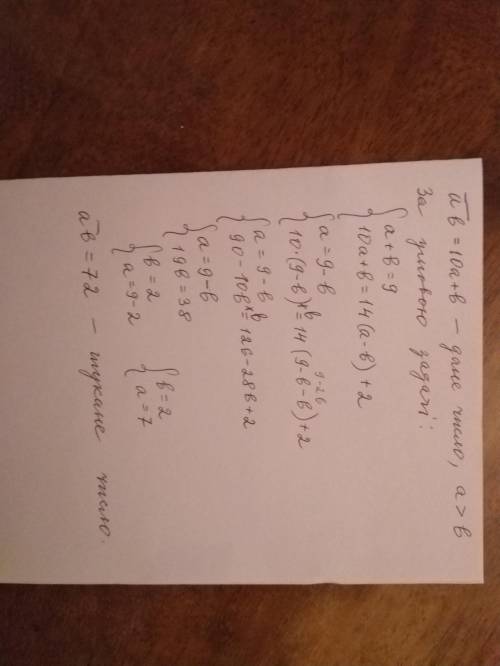 ab = 10a+b – дане число, a > b
За умовою задачі:
{ a + b = 9
10a + b = 14(a - b) + 2
{ a = 9 - b
10·(9-b)+b = 14(9-b-b)+2
9-2b
{ a = 9 - b
90 - 10b+b = 126 - 28b + 2
{ a = 9 - b
19b = 38
{ b = 2
a = 9 - 2
{ b = 2
a = 7
ab = 72 – шукане число.